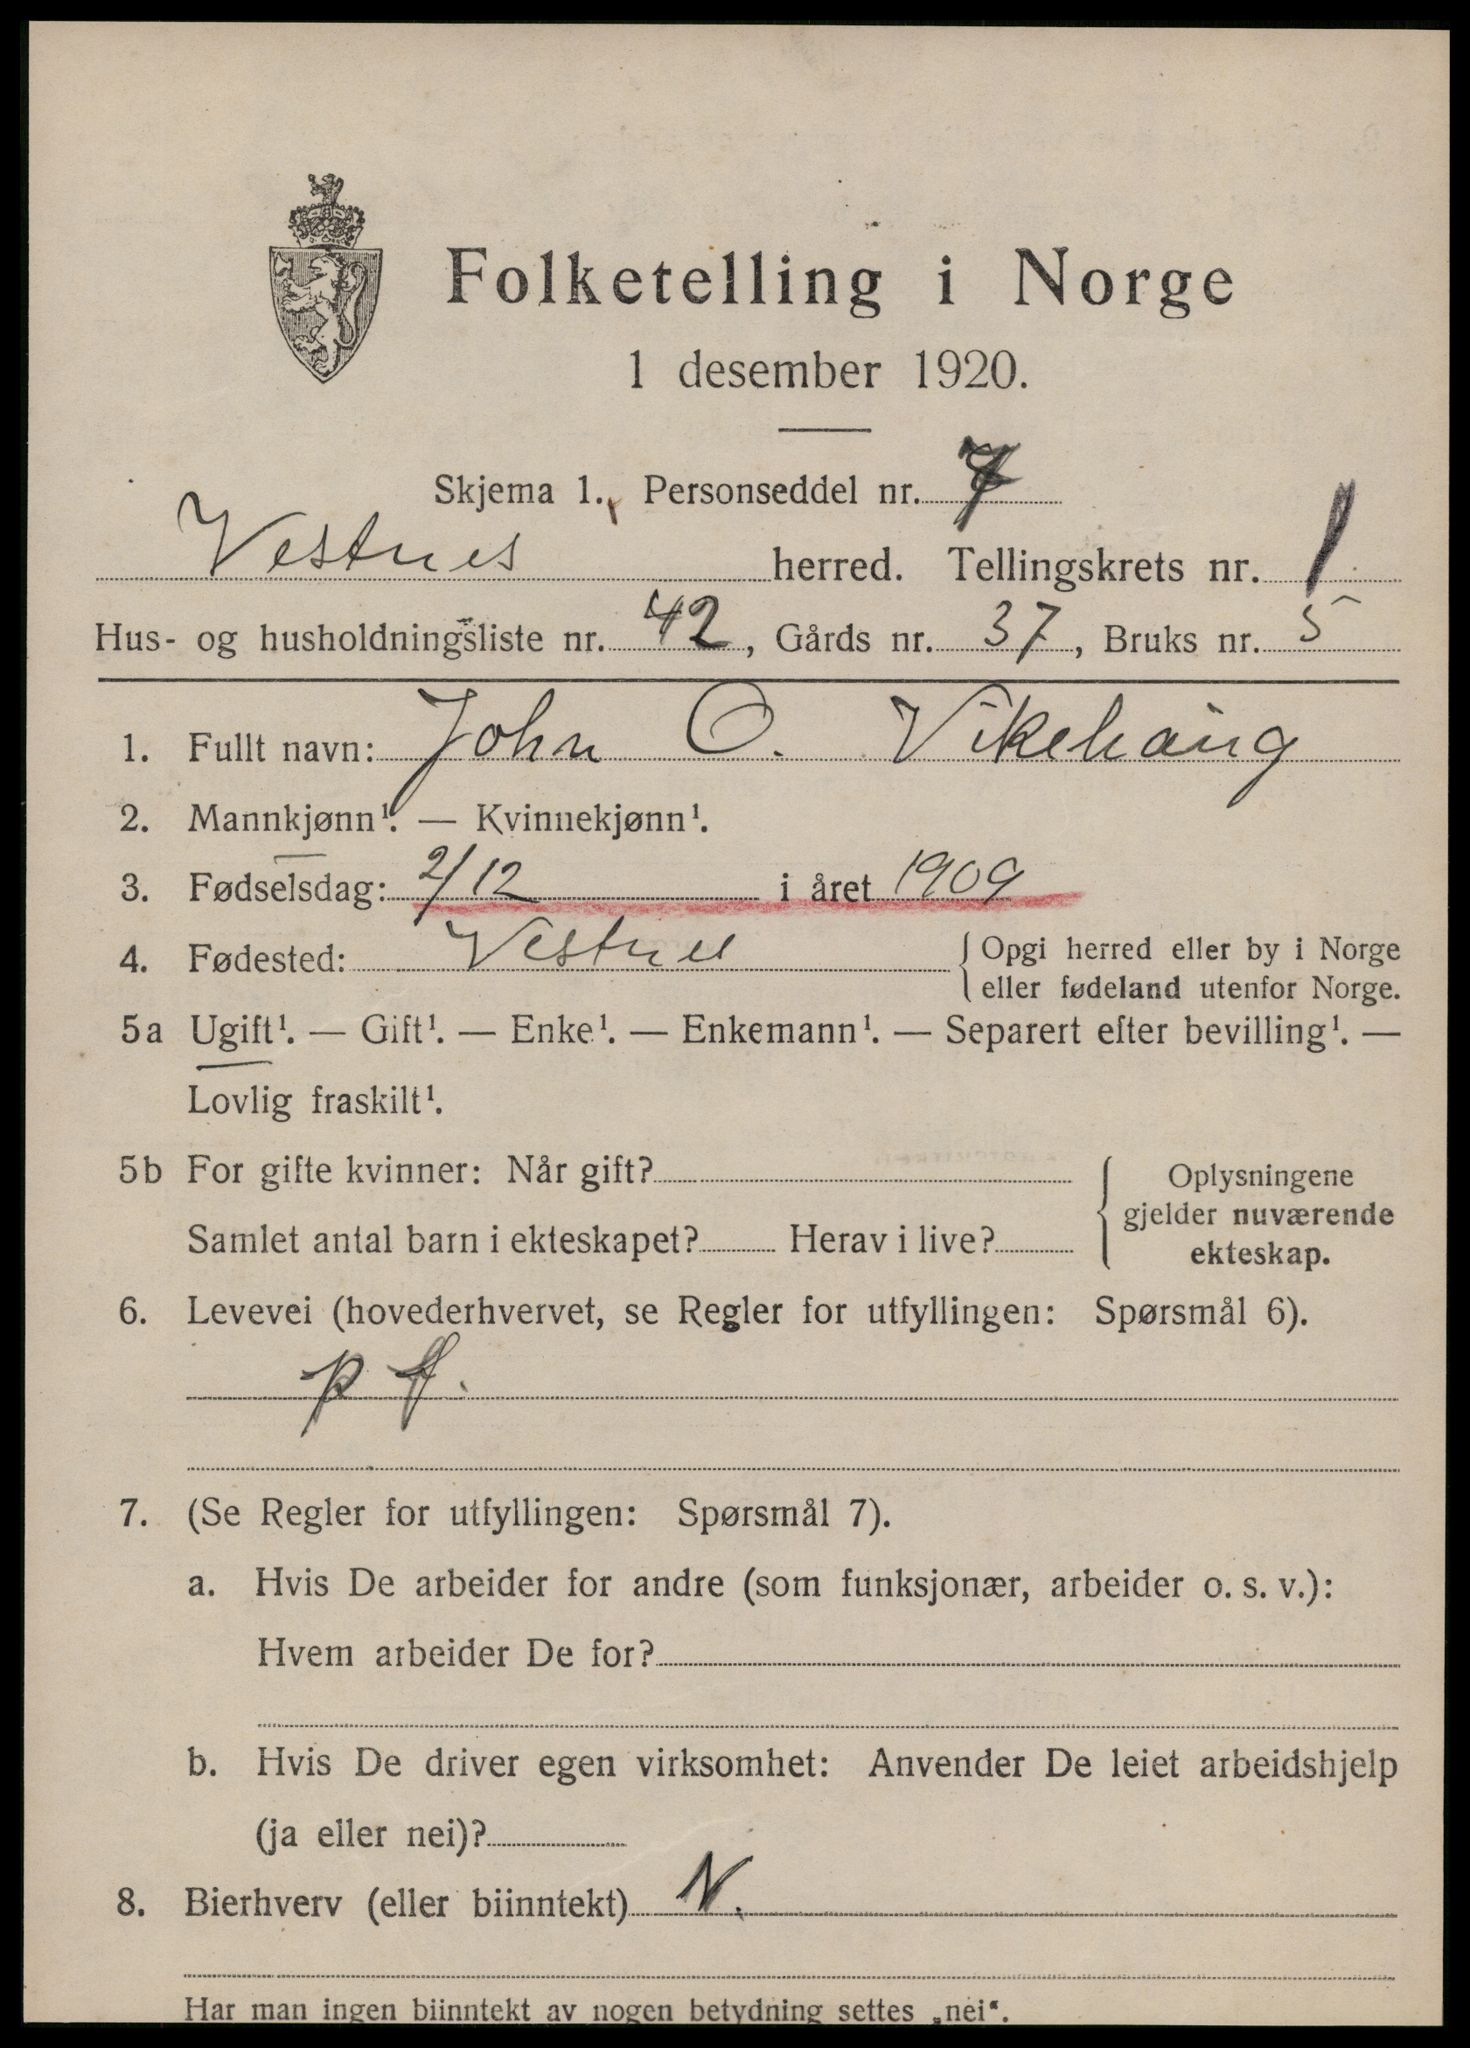 Folketelling i Norge
1 desember 1920.
Skjema 1. Personseddel nr. 7
Vestnes herred. Tellingskrets nr. 1
Hus- og husholdningsliste nr. 42, Gårds nr. 37, Bruks nr. 5
1. Fullt navn: John O. Vikehaug
2. Mannkjønn¹. — Kvinnekjønn¹.
3. Fødselsdag: 2/12 i året 1909
4. Fødested: Vestnes { Opgi herred eller by i Norge
eller fødeland utenfor Norge.
5a Ugift¹. — Gift¹. — Enke¹. — Enkemann¹. — Separert efter bevilling¹. —
Lovlig fraskilt¹.
5b For gifte kvinner: Når gift?
Samlet antal barn i ekteskapet? Herav i live?
{ Oplysningene
gjelder nuværende
ekteskap.
6. Levevei (hovederhvervet, se Regler for utfyllingen: Spørsmål 6).
p f.
7. (Se Regler for utfyllingen: Spørsmål 7).
a. Hvis De arbeider for andre (som funksjonær, arbeider o. s. v.):
Hvem arbeider De for?
b. Hvis De driver egen virksomhet: Anvender De leiet arbeidshjelp
(ja eller nei)?
8. Bierhverv (eller biinntekt) N.
Har man ingen biinntekt av nogen betydning settes „nei“.